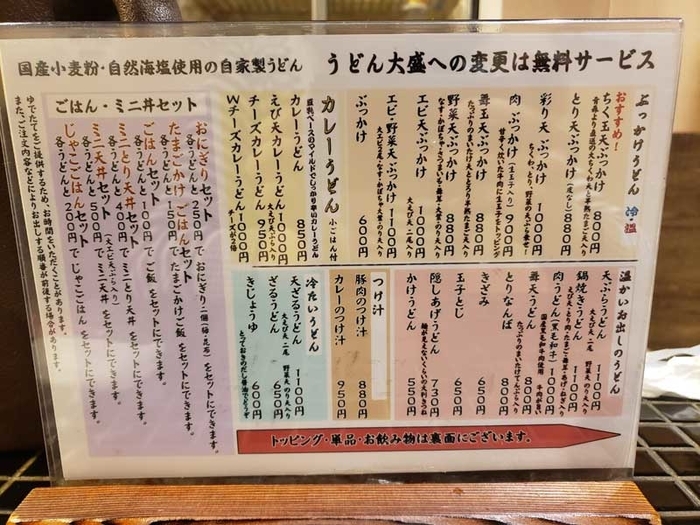 国産小麦粉・自然海塩使用の自家製うどん
うどん大盛への変更は無料サービス
ぶっかけうどん 冷 温
おすすめ！
ちく玉天ぶっかけ 800円
とり天ぶっかけ 880円
彩り天 ぶっかけ 1000円
肉 ぶっかけ (生玉子入り) 900円
舞玉天 ぶっかけ 880円
野菜天 ぶっかけ 880円
エビ天 ぶっかけ 1000円
エビ・野菜天 ぶっかけ 1100円
ぶっかけ 600円
カレーうどん 小ごはん付
カレーうどん 850円
えび天カレーうどん 1100円
チーズカレーうどん 950円
Wチーズカレーうどん 1000円
チーズが2倍
ごはん・ミニ丼セット
おにぎりセット
各うどんと 250円 で おにぎり二個(梅・昆布) をセットにできます。
たまごかけごはんセット
各うどんと 150円 で たまごかけご飯 をセットにできます。
ごはんセット
各うどんと 100円 で ご飯 をセットにできます。
ミニとり天丼セット
各うどんと 400円 で ミニとり天丼 をセットにできます。
ミニ天丼セット (大エビ天ぷら入り)
各うどんと 500円 で ミニ天丼 をセットにできます。
じゃこごはんセット
各うどんと 200円 で じゃこごはん をセットにできます。
ゆでたてをご提供するため、お時間をいただくことがあります。
また、ご注文内容などによりお出しする順番が前後する場合があります。
温かいお出しのうどん
天ぷらうどん 1100円
大えび天 二尾 野菜天 のり天入り
鍋焼きうどん 1100円
肉うどん (黒毛和牛) 1000円
舞天うどん 800円
とりなんば 800円
きざみ 650円
玉子とじ 650円
隠しあげうどん 730円
かけうどん 550円
つけ汁
豚肉のつけ汁 880円
カレーのつけ汁 950円
冷たいうどん
天ざるうどん 1100円
大えび天 二尾 野菜天 のり天入り
ざるうどん 650円
きじょうゆ 600円
とっておきのだし醤油でどうぞ
トッピング・単品・お飲み物は裏面にございます。